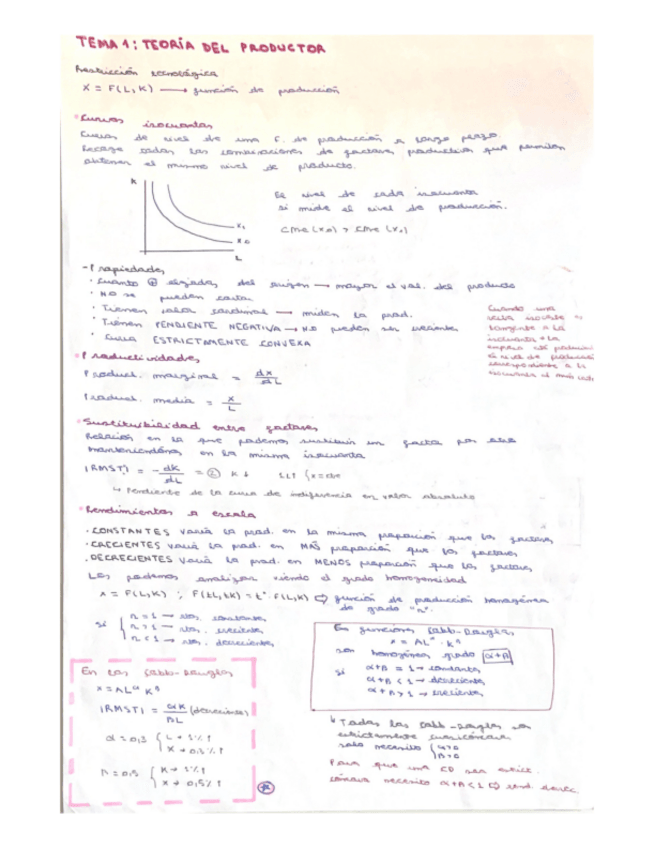 TEMA 1: TEORÍA DEL PRODUCTOR
Restricción tecnológica
X = F(L,K) → función de producción
* Curvas isocuantas
Curvas de nivel de una F. de producción a largo plazo.
Recoge todas las combinaciones de factores productivos que permiten
obtener el mismo nivel de producto.
K
X1
X0
L
El nivel de cada isocuanta
si mide el nivel de producción.
- Propiedades
· Cuanto + alejadas del origen → mayor el val. del producto
· NO se pueden cortar
· Tienen valor cardinal → miden la prod.
· Tienen PENDIENTE NEGATIVA → NO pueden ser crecientes
· Curva ESTRICTAMENTE CONVEXA
Cuando una
recta isocoste es
tangente a la
isocuanta → la
empresa
* Productividades
Product. marginal = dx/dL
Product. media = x/L
* Sustituibilidad entre factores
Relación en la que podemos sustituir un factor por otro
manteniéndonos en la misma isocuanta
|RMST| = -dK/dL = 2 K↓
↳ Pendiente de la curva de indiferencia en valor absoluto
* Rendimientos a escala
· CONSTANTES varía la prod. en la misma proporción que los factores
· CRECIENTES varía la prod. en MÁS proporción que los factores
· DECRECIENTES varía la prod. en MENOS proporción que los factores
Los podemos analizar viendo el grado homogeneidad
x = F(L,K) ; F(tL,tK) = tⁿ · F(L,K) ⇨ función de producción homogénea
de grado "n".
Si
n = 1 → rtos. constantes
n > 1 → rtos. crecientes
n < 1 → rtos. decrecientes
En funciones Cobb-Douglas
x = ALᵅ · Kᵝ
son homogéneas grado α+β
Si
α+β = 1 → constantes
α+β < 1 → decrecientes
α+β > 1 → crecientes
En las Cobb-Douglas
x = ALᵅ Kᵝ
|RMST| = αK/βL (decreciente)
α = 0,3
L → 1% ↑
X → 0,3% ↑
β = 0,5
K → 1% ↑
X → 0,5% ↑
↳ Todas las Cobb-Douglas son
estrictamente cuasicóncavas
solo necesito
α>0
β>0
Para que una CD sea estrict.
cóncava necesito α+β<1 ⇨ rend. decrec.